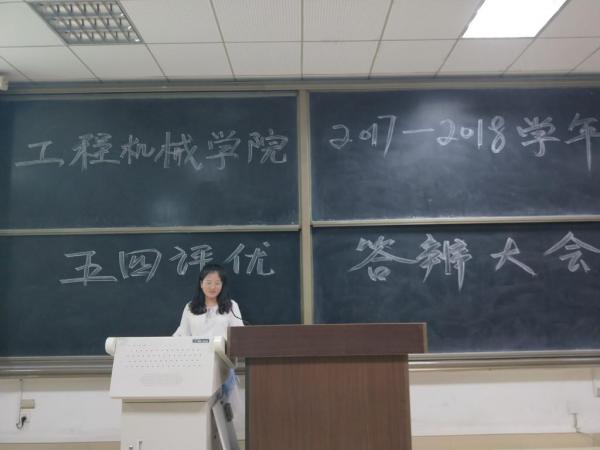 工程机械学院
2017—2018学年
五四评优
答辨大会